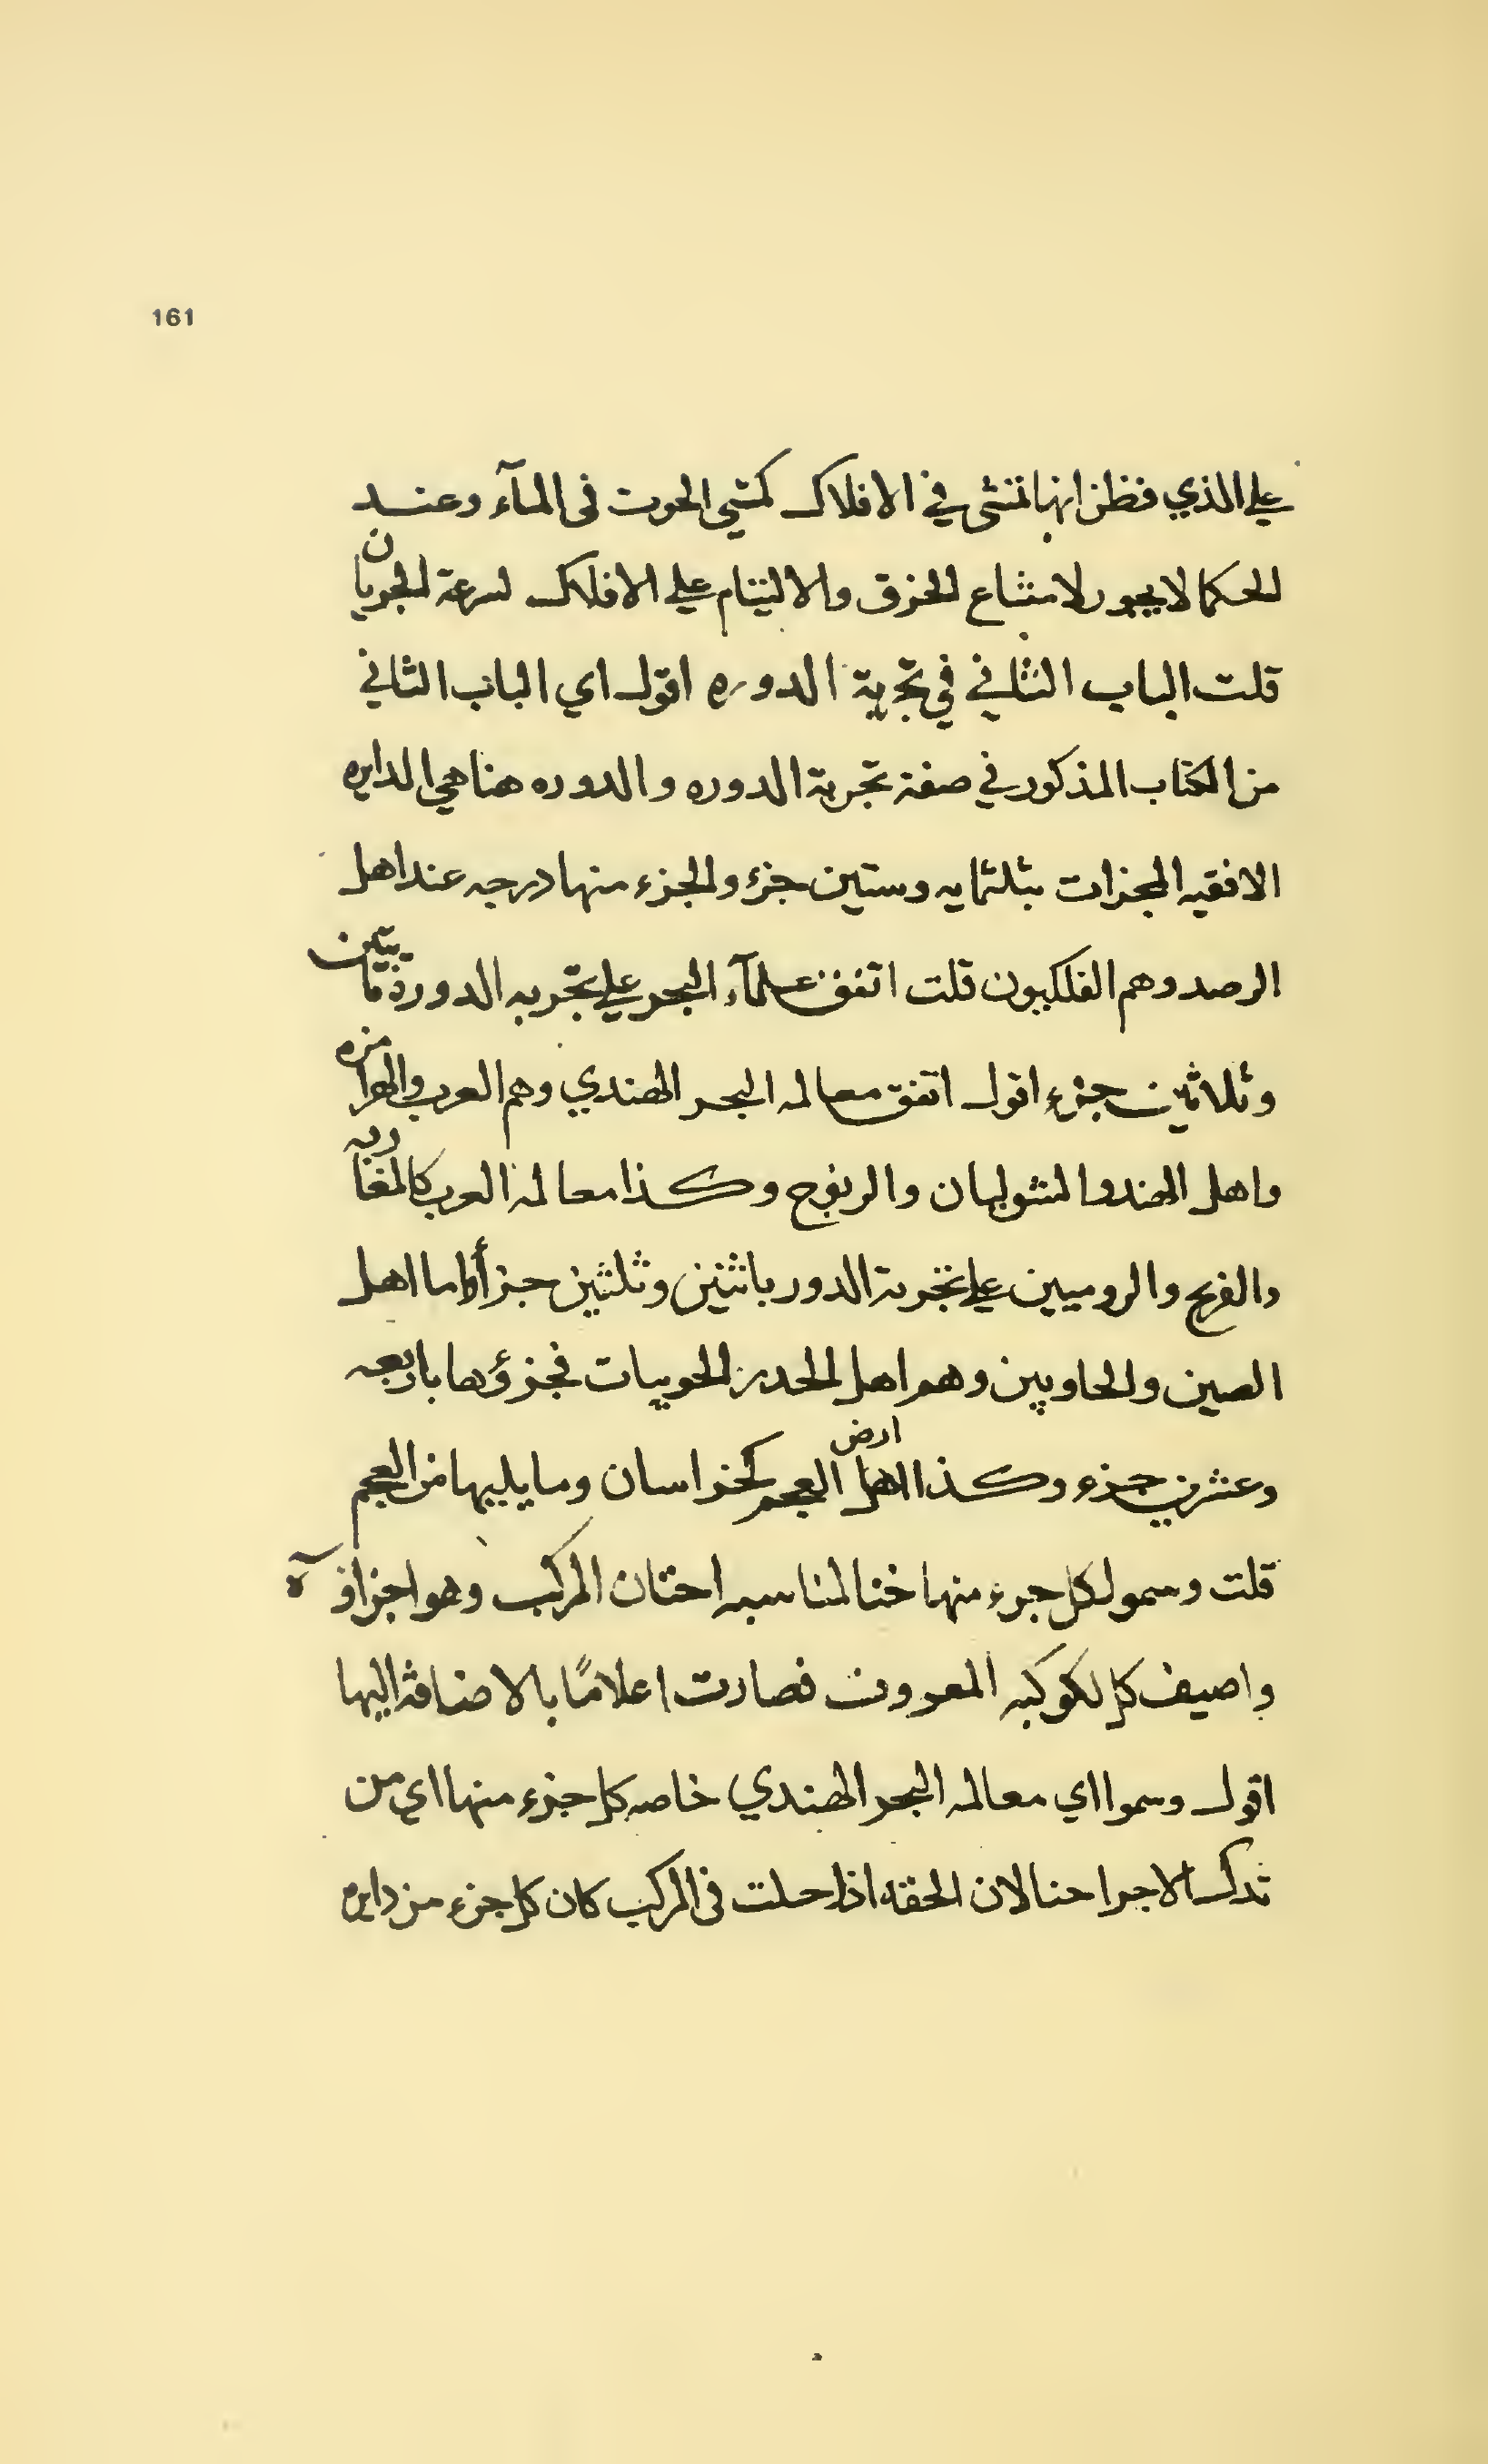 161
علي الذي فظن انها تمشى في الافلاك كمشي الحوت فى المآء وعند
الحكما لا يجور لامتناع الخرق والالتيام علي الافلاك لسرعة الجريان
قلت الباب الثاني في تجربة الدوره اقول اي الباب الثاني
من الكتاب المذكور في صفة تجربة الدوره والدوره هنا هي الدايره
الافقيه المجزات بثلثمايه وستين جزؤ والجزء منها درجه عند اهل
الرصد وهم الفلكيون قلت اتفق علمآء البحر علي تجربه الدورة باثنين
وثلاثين جزء اقول اتفق معالمه البحر الهندي وهم العرب والهرامزه
واهل الهند والشوليان والزنوج وكذا معالمة العرب كالمغاربه
والفرنج والروميين علي تجربة الدور باثنين وثلثين جزأ واما اهل
الصين والجاويين وهم اهل الحدر الجوييات فجزؤها باربعه
وعشرين جزء وكذا اهل ارض العجم كخراسان وما يليها من العجم
قلت وسمو لكل جزء منها خنا لمناسبه اخنان المركب وهو اجزاؤه
واضيف كل لكوكبه المعروف فصارت اعلامًا بالاضافة اليها
اقول وسموا اي معالمه البحر الهندي خاصه كل جزء منها اي من
تلك الاجزا خنا لان الحقه اذا حلت فى المركب كان كل جزء من دايره